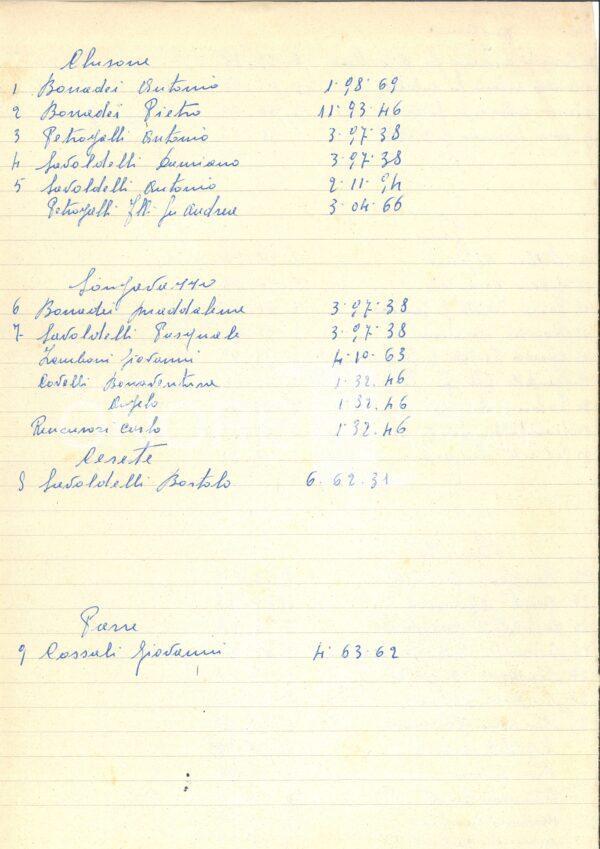 Clusone
1 Bonadei Antonio 1.98.69
2 Bonadei Pietro 11.93.46
3 Petrogalli Antonio 3.97.38
4 Savoldelli Damiano 3.97.38
5 Savoldelli Antonio 2.11.94
Petrogalli flli fu Andrea 3.04.66
Songavazzo
6 Bonadei Maddalena 3.97.38
7 Savoldelli Pasquale 3.97.38
Zamboni Giovanni 4.10.63
Covelli Bonaventura 1.32.46
Angelo 1.32.46
Carlo 1.32.46
Cerete
8 Savoldelli Bortolo 6.62.31
Parre
9 Cossali Giovanni 4.63.62